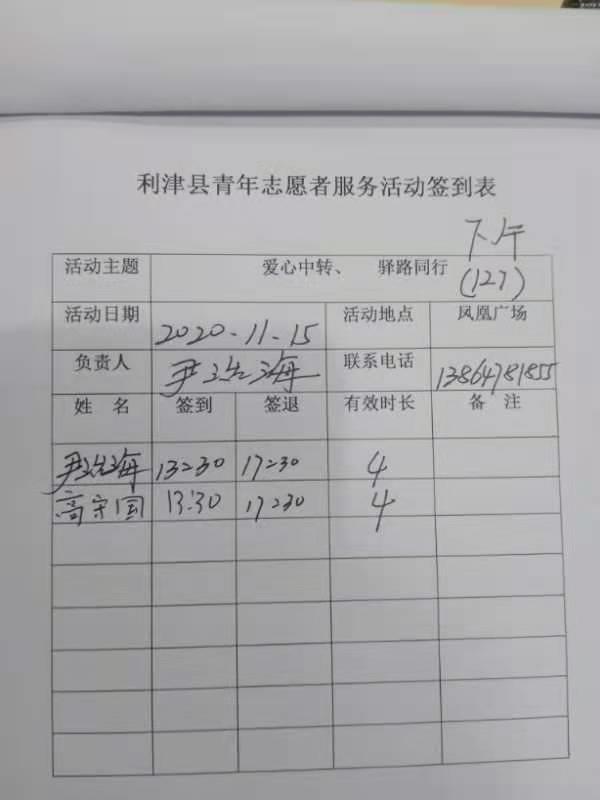 利津县青年志愿者服务活动签到表
下午
活动主题 爱心中转、 驿路同行 (127)
活动日期 2020-11-15 活动地点 凤凰广场
负责人 尹 海 联系电话 13864781855
姓 名 签到 签退 有效时长 备 注
尹 海 13=30 17=30 4
高守国 13:30 17=30 4